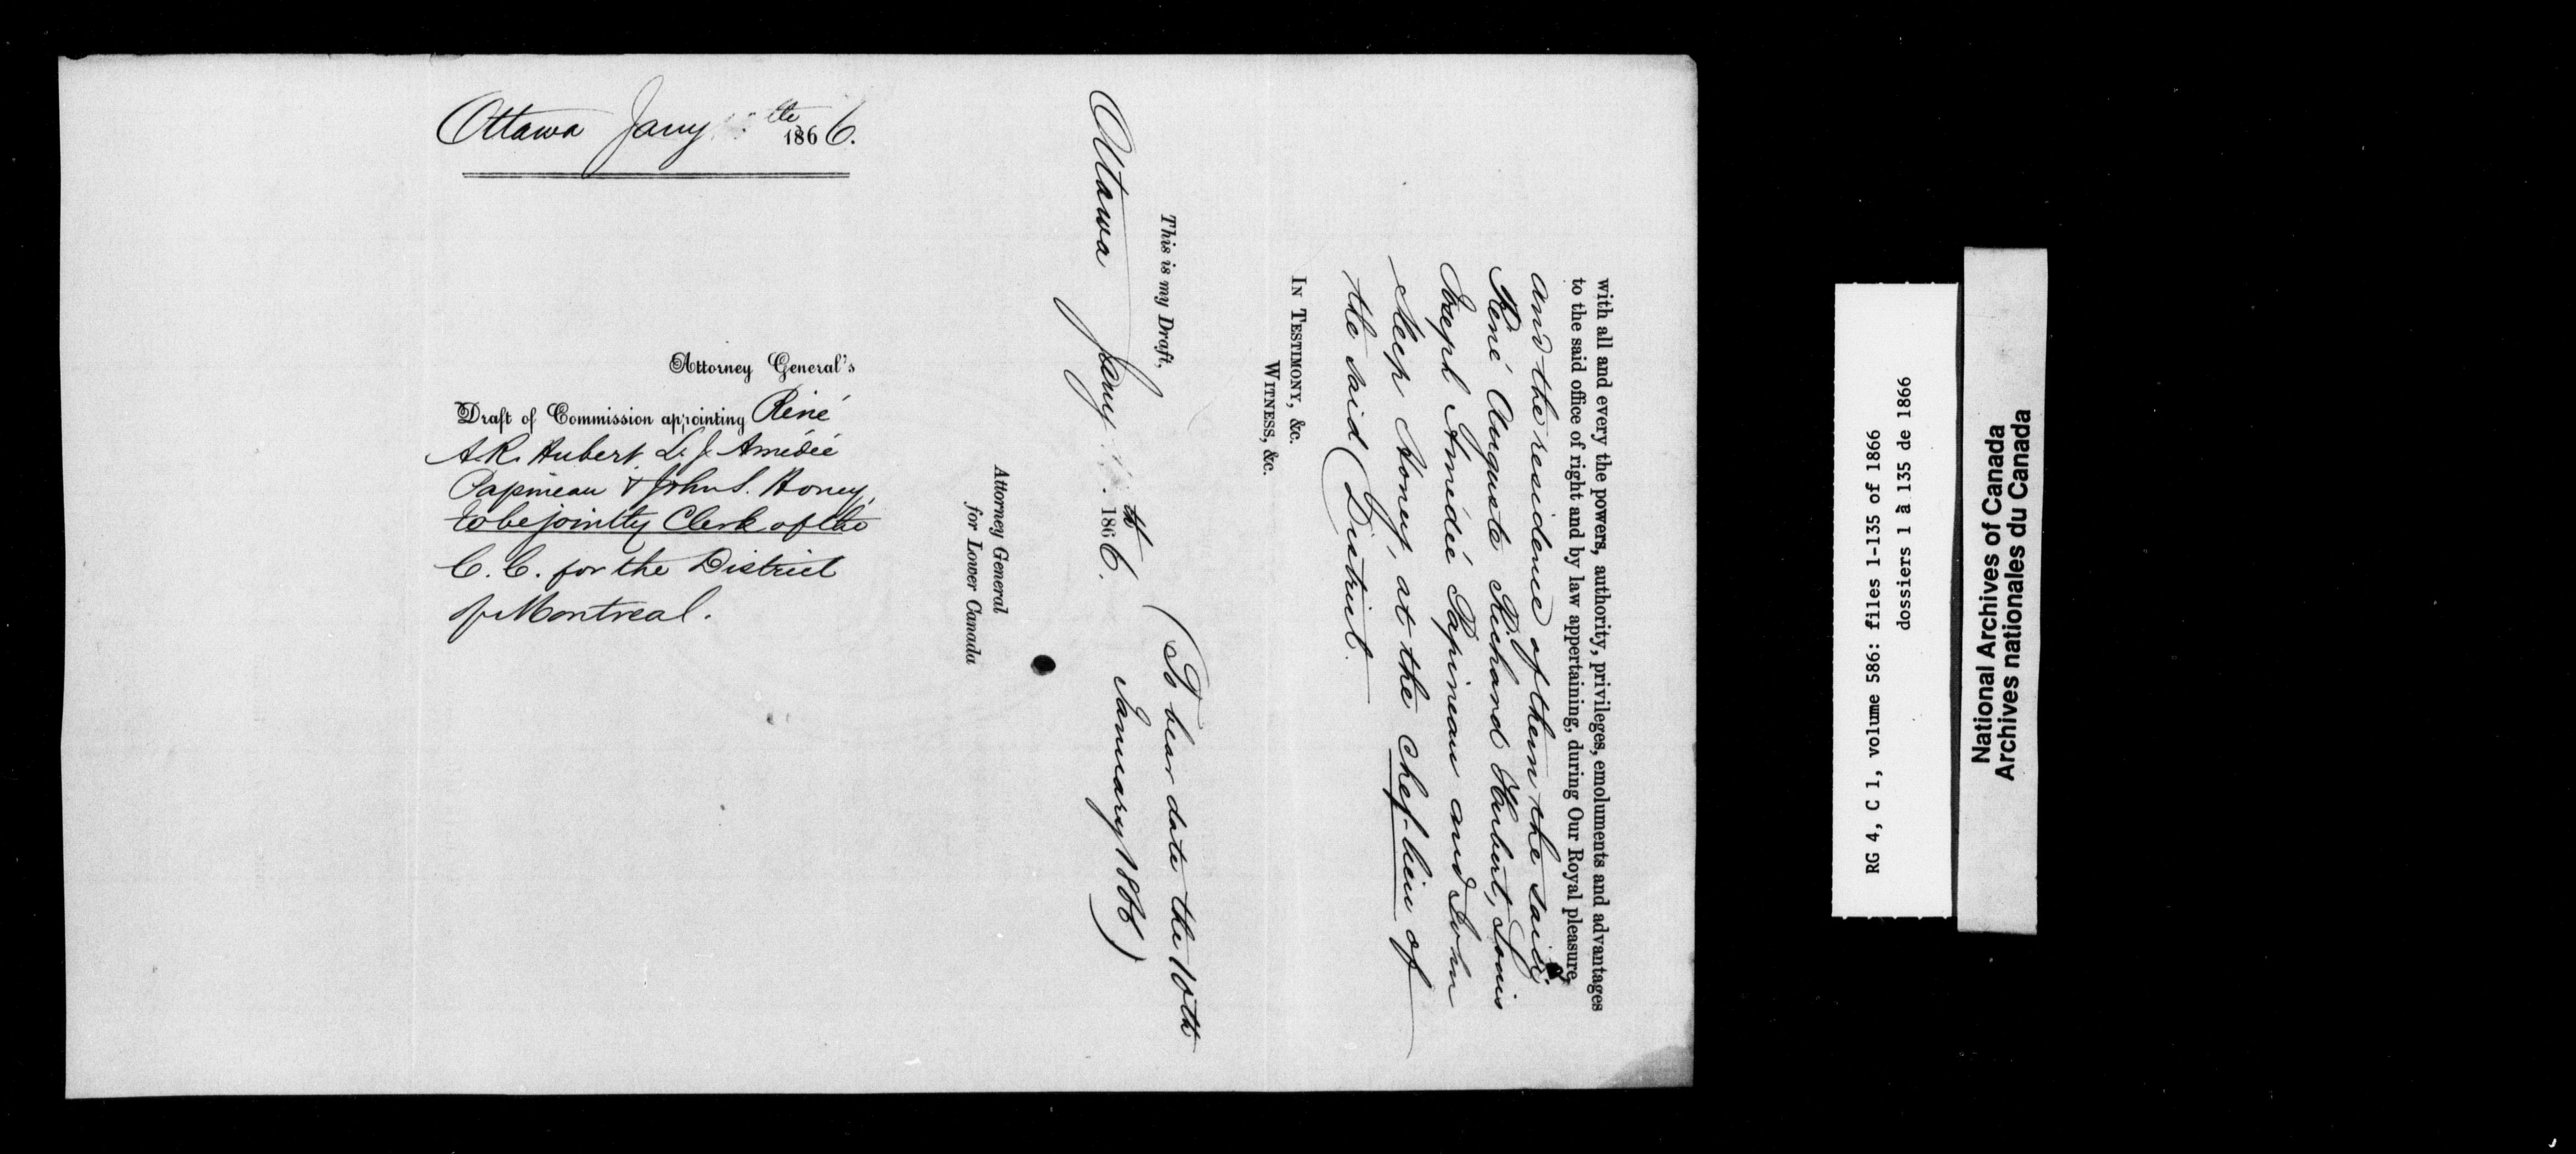 Ottawa Jany th 1866.
Attorney General's
Draft of Commission appointing René
A. R. Hubert, L. J. Amédée
Papineau & John S. Honey,
to be jointly Clerk of the
C. C. for the District
of Montreal.
with all and every the powers, authority, privileges, emoluments and advantages
to the said office of right and by law appertaining, during Our Royal pleasure,
and the residence of them the said
René Auguste Richard Hubert, Louis
Joseph Amédée Papineau and John
Sleep Honey, at the chef-lieu of
the said District.
In Testimony, &c.
Witness, &c.
This is my Draft,
Ottawa Jany th 1866.
(To bear date the 10th
January 1866)
Attorney General
for Lower Canada
RG 4, C 1, volume 586: files 1-135 of 1866
dossiers 1 à 135 de 1866
National Archives of Canada
Archives nationales du Canada